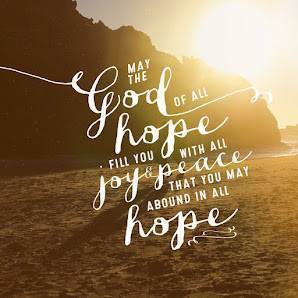 MAY
THE
God OF ALL
hope
FILL YOU WITH ALL
joy & peace
THAT YOU MAY
ABOUND IN ALL
hope